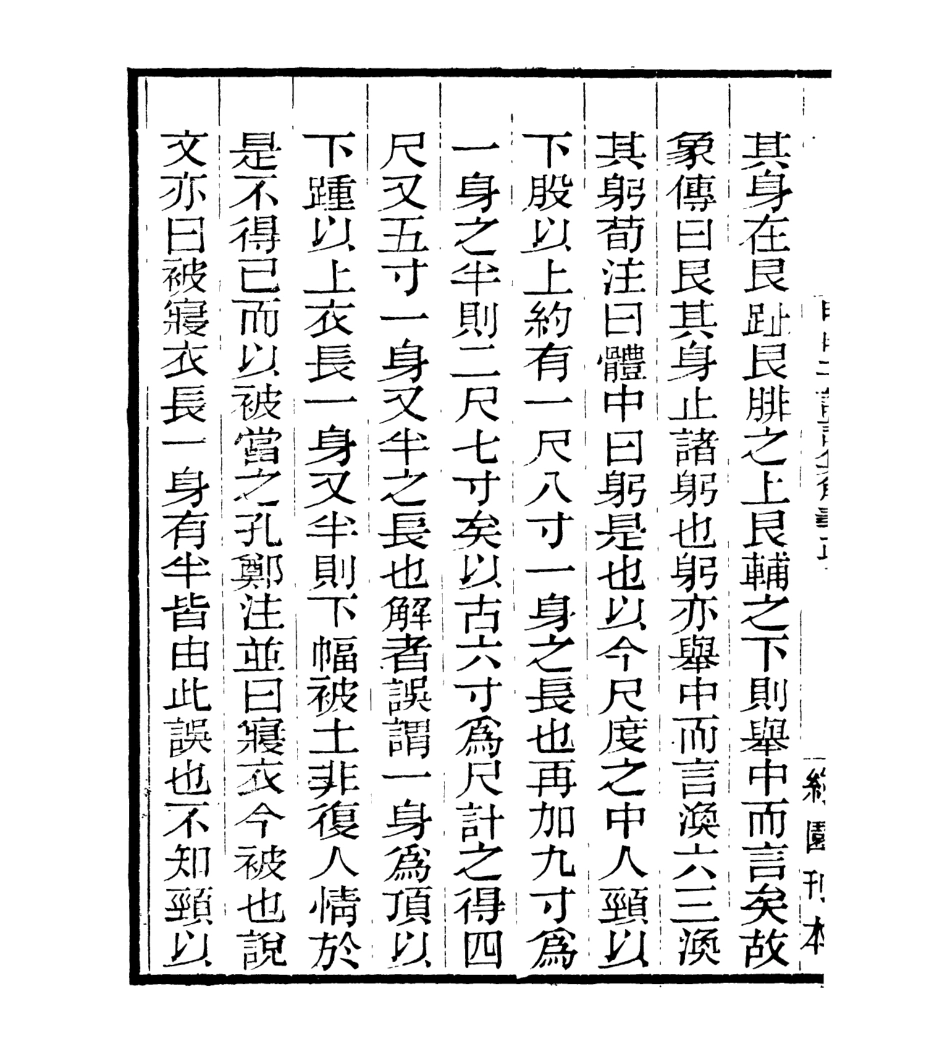 其身在艮趾艮腓之上艮輔之下則舉中而言矣故
象傳曰艮其身止諸躬也躬亦舉中而言渙六三渙
其躬荀注曰體中曰躬是也以今尺度之中人頸以
下股以上約有一尺八寸一身之長也再加九寸爲
一身之半則二尺七寸矣以古六寸爲尺計之得四
尺又五寸一身又半之長也解者誤謂一身爲頂以
下踵以上衣長一身又半則下幅被土非復人情於
是不得已而以被當之孔鄭注並曰寢衣今被也說
文亦曰被寢衣長一身有半皆由此誤也不知頸以
綠園刊本